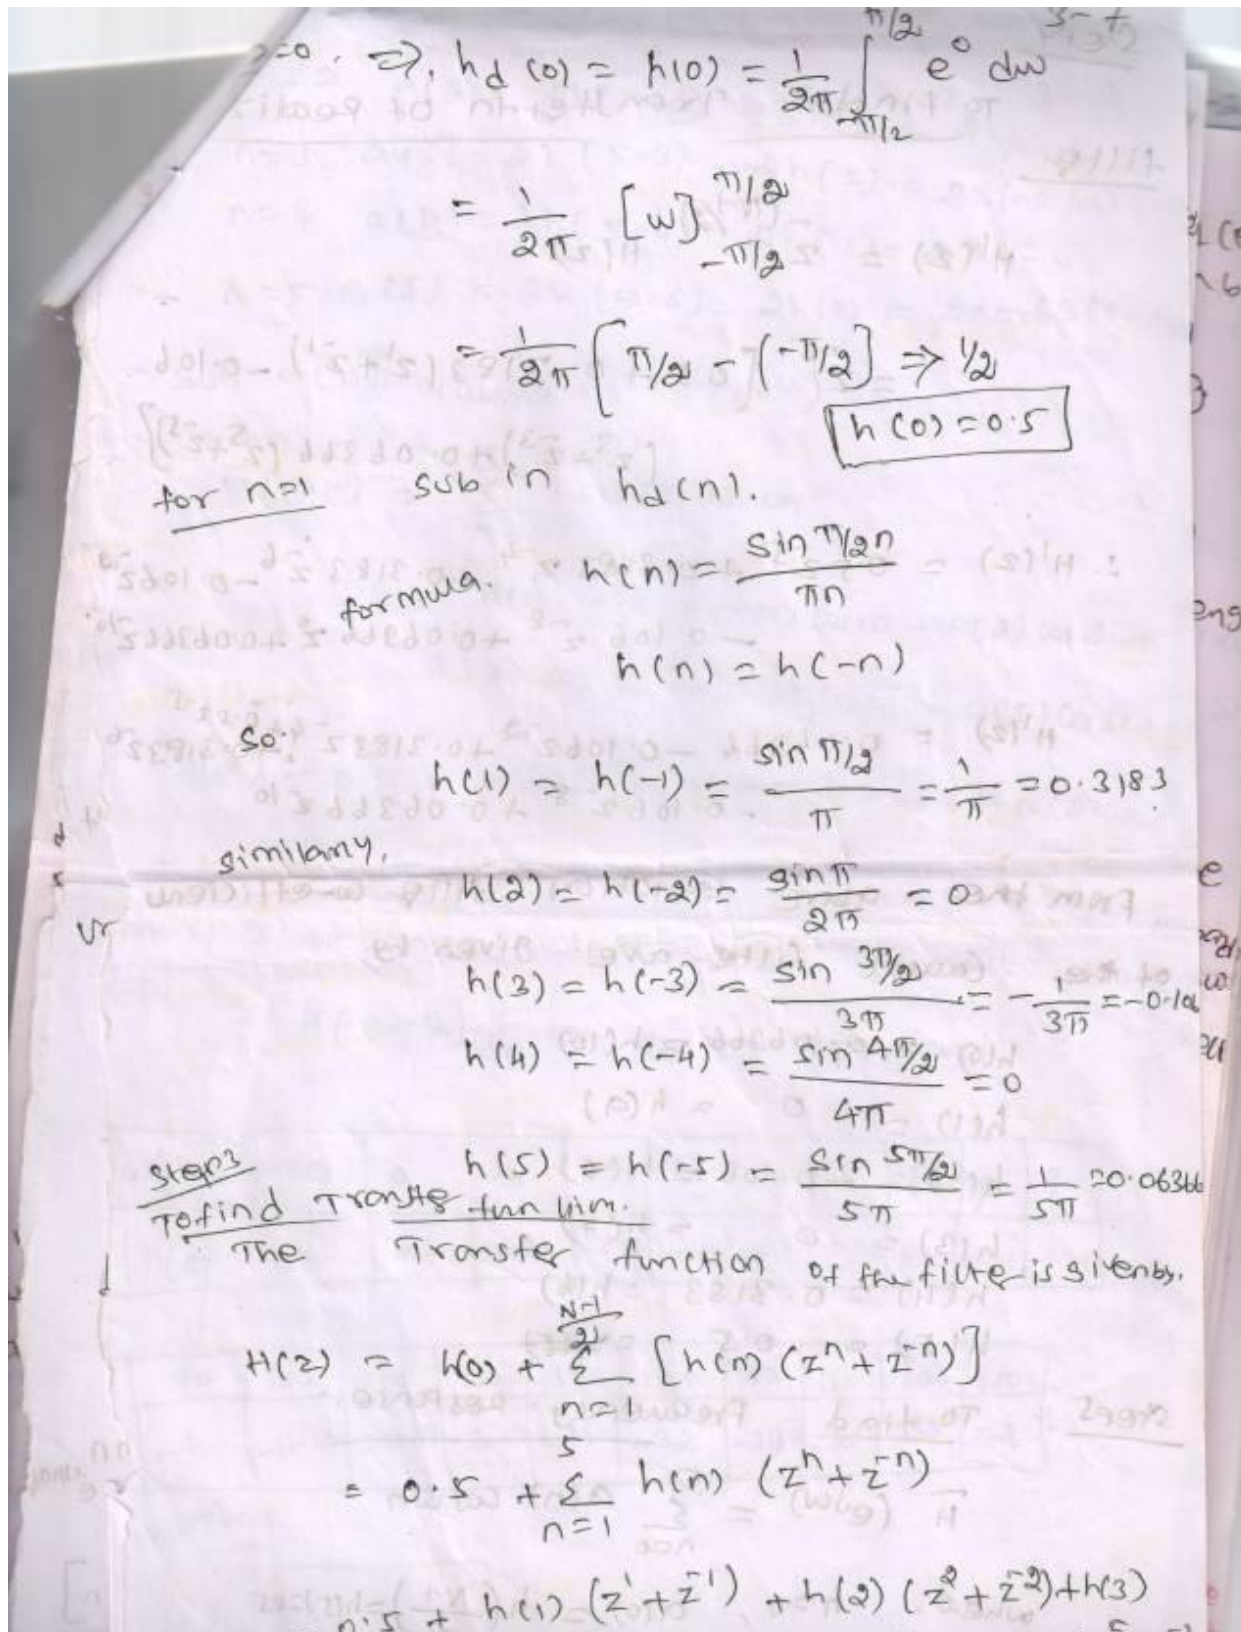 =0. ⇒. hd (0) = h(0) = 1/2π ∫_{-π/2}^{π/2} e^0 dw
= 1/2π [w]_{-π/2}^{π/2}
= 1/2π [π/2 - (-π/2] ⇒ 1/2
h(0) = 0.5
for n=1 sub in hd(n).
formula. h(n) = sin π/2n / πn
h(n) = h(-n)
so.
h(1) = h(-1) = sin π/2 / π = 1/π = 0.3183
similarly,
h(2) = h(-2) = sin π / 2π = 0
h(3) = h(-3) = sin 3π/2 / 3π = - 1/3π = -0.106
h(4) = h(-4) = sin 4π/2 / 4π = 0
Step3 h(5) = h(-5) = sin 5π/2 / 5π = 1/5π = 0.06366
To find Transfe funtion.
The Transfer function of the filte is givenby.
H(z) = h(0) + Σ_{n=1}^{N-1/2} [h(n) (z^n + z^{-n})]
= 0.5 + Σ_{n=1}^{5} h(n) (z^n + z^{-n})
0.5 + h(1) (z^1 + z^{-1}) + h(2) (z^2 + z^{-2}) + h(3)